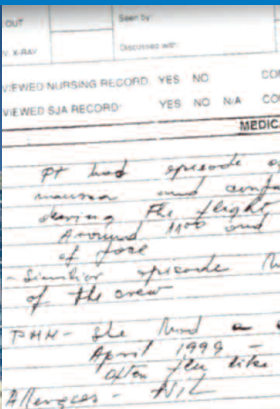 OUT
Seen by:
V. X-RAY
Discussed with:
VIEWED NURSING RECORD: YES NO CO
VIEWED SJA RECORD: YES NO N/A CO
MEDIC
Pt had episode o
nausea and conf
during the flight
Around 1100 and
of
- Similar episode
of the crew
PMH - She had a
April 1999 -
often flu like
Allergies - NIL